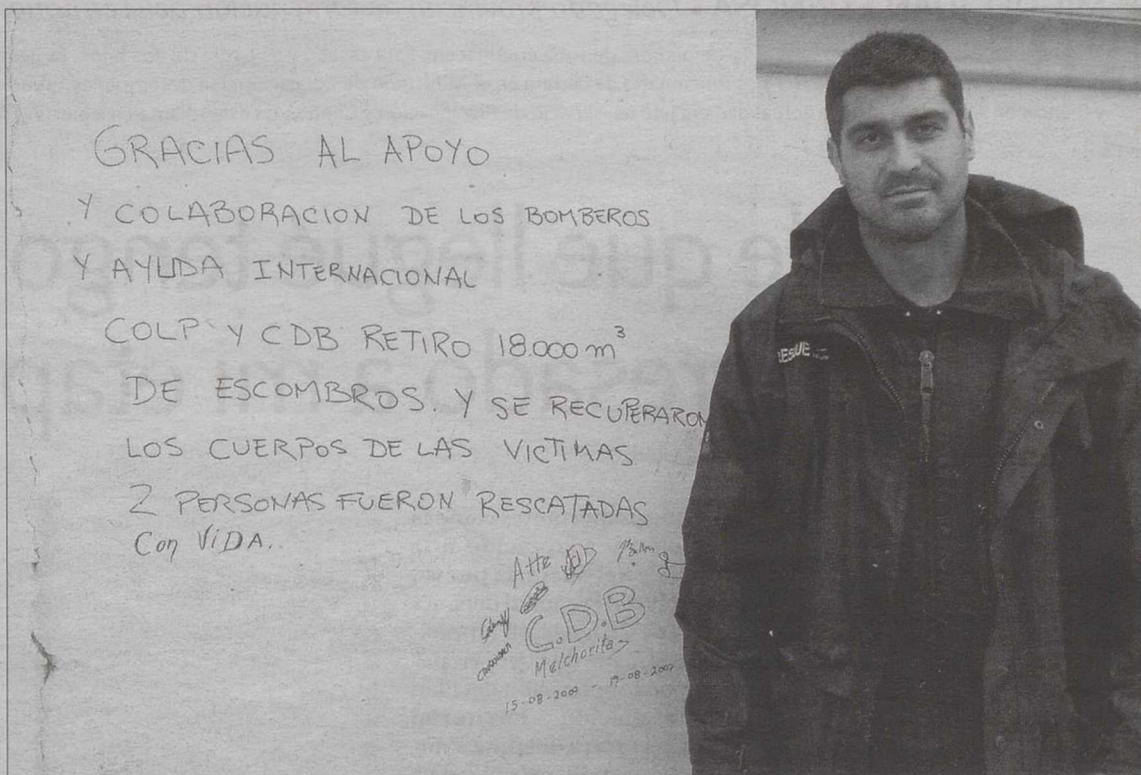 GRACIAS AL APOYO
Y COLABORACION DE LOS BOMBEROS
Y AYUDA INTERNACIONAL
COLP Y CDB RETIRO 18.000 m³
DE ESCOMBROS. Y SE RECUPERARON
LOS CUERPOS DE LAS VICTIMAS
2 PERSONAS FUERON RESCATADAS
Con ViDA..
Atte
C.D.B
Melchorita
15-08-2007 - 19-08-2007